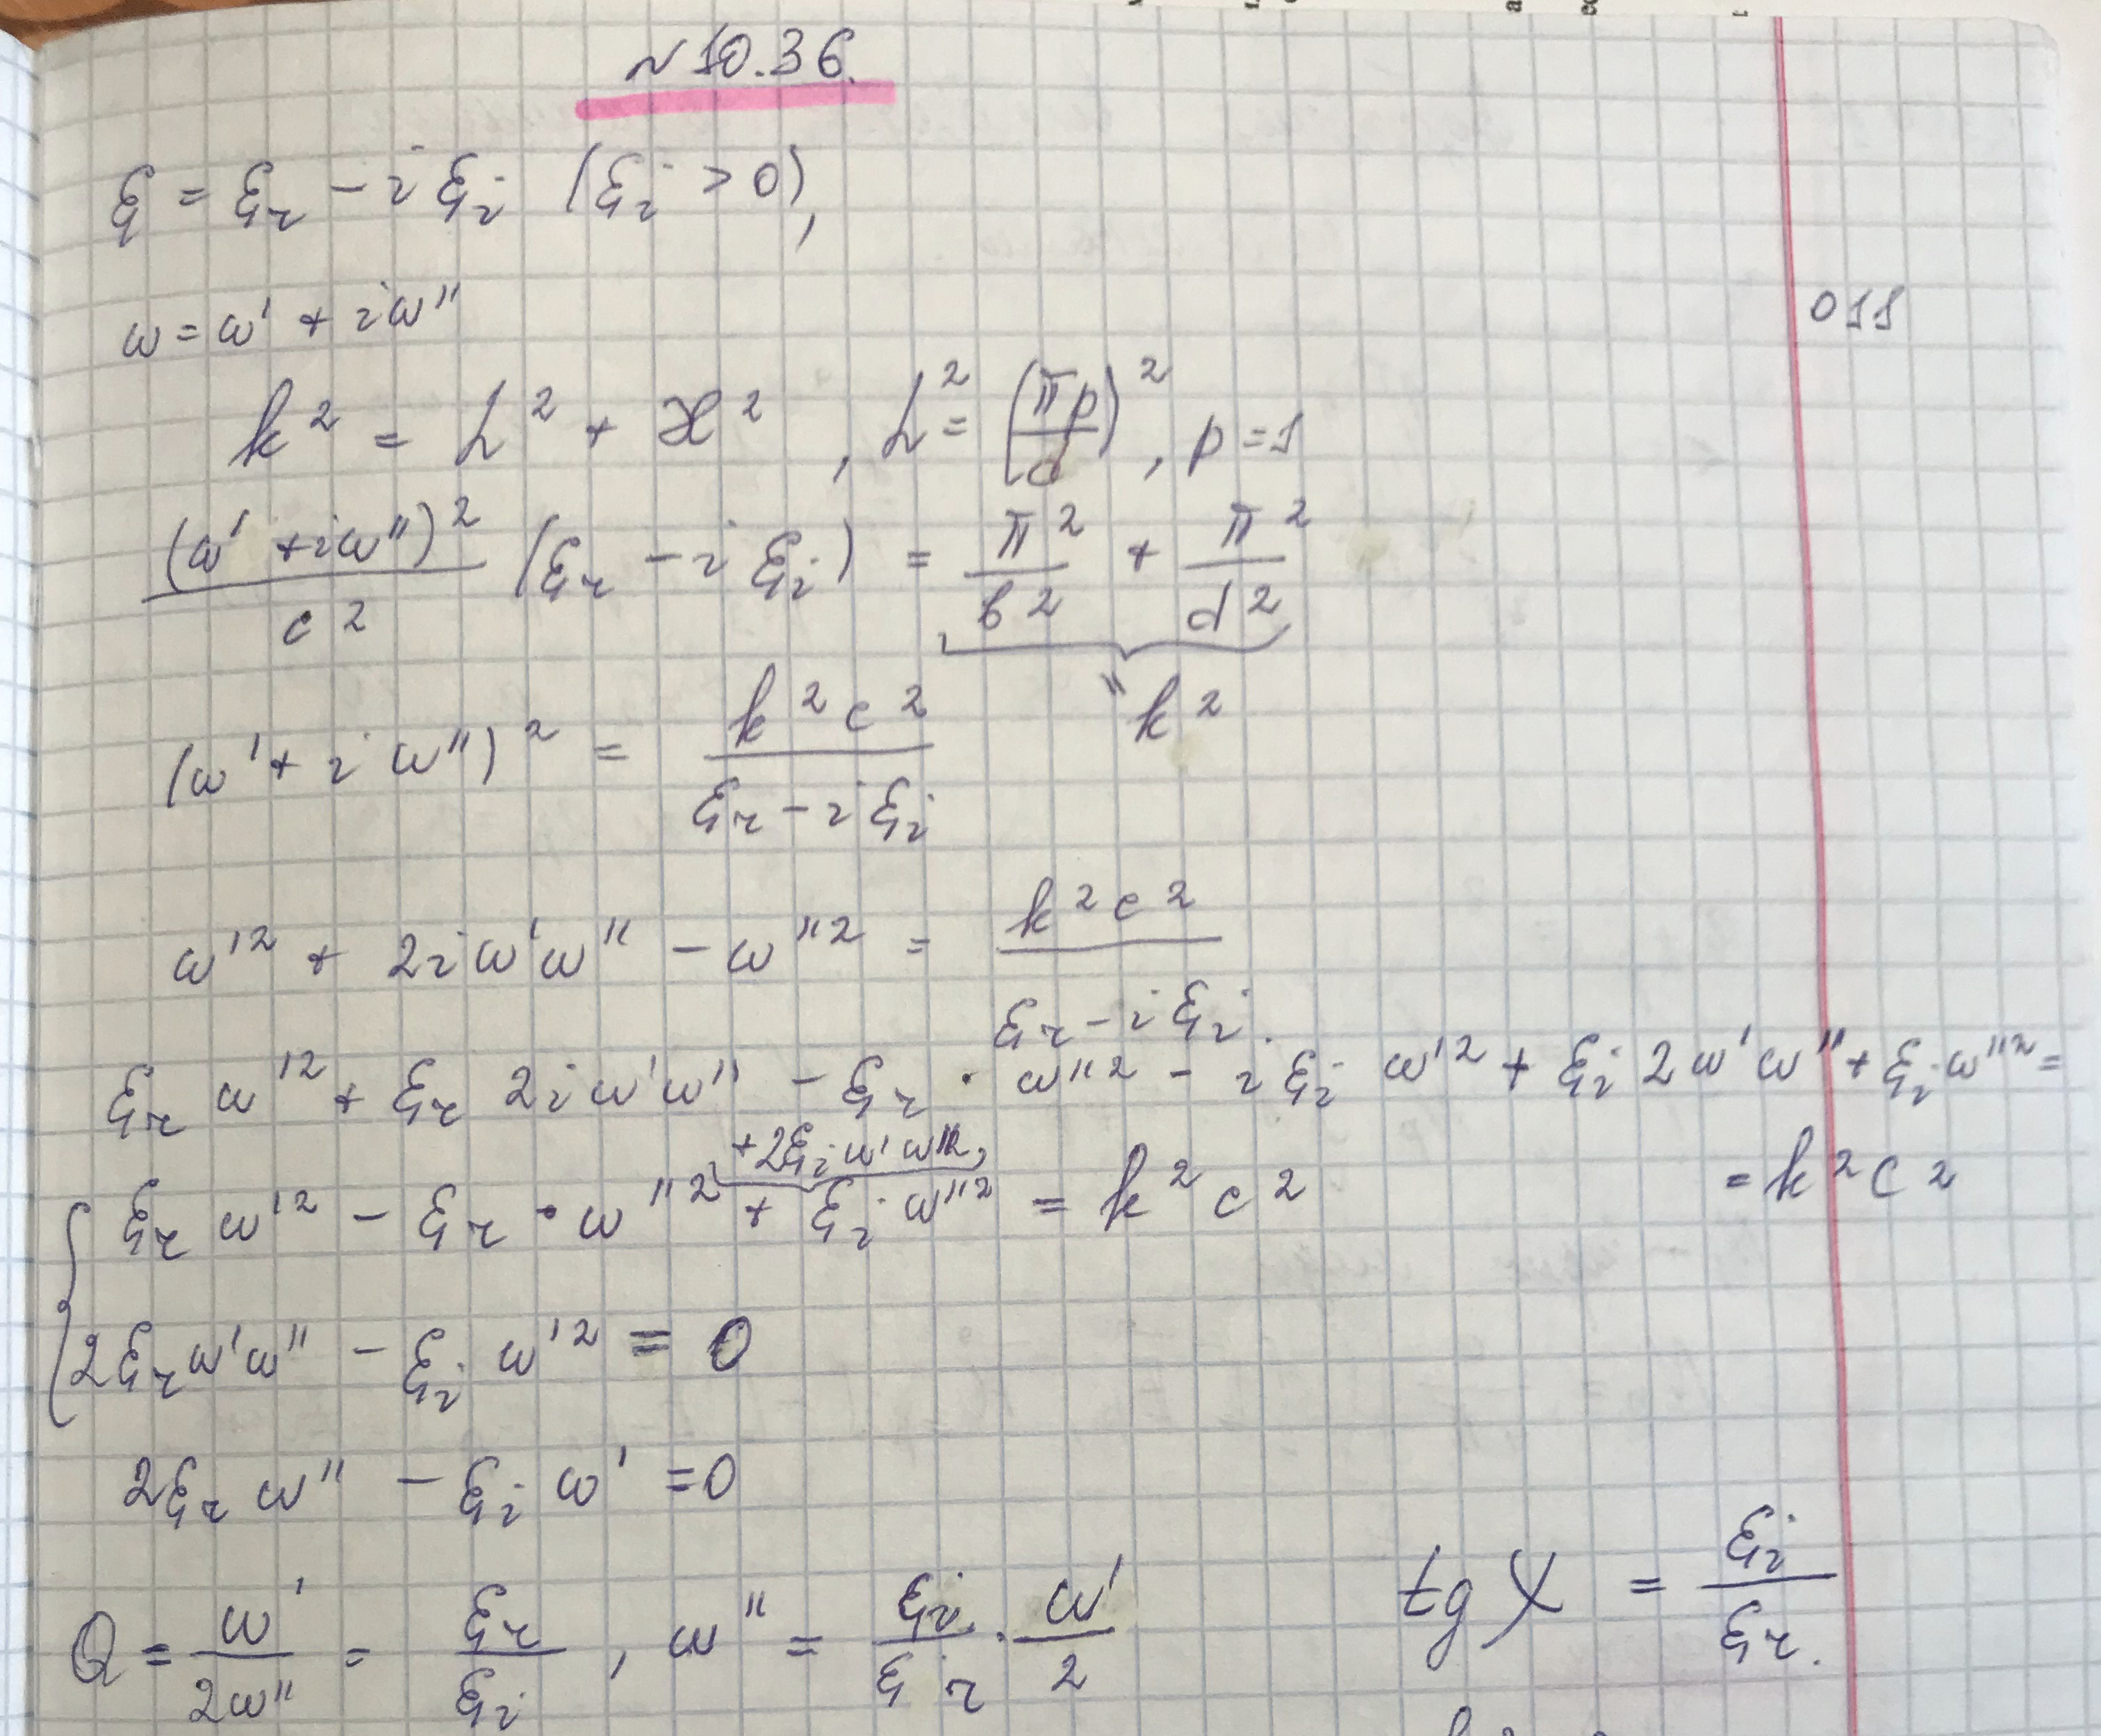 № 10.36.
ε = ε_r − i ε_i (ε_i > 0),
ω = ω' + iω"
011
k² = h² + æ², h² = (πp/d)², p = 1
(ω' + iω")²/c² (ε_r − i ε_i) = π²/b² + π²/d²
" k²
(ω' + i ω")² = k²c²/(ε_r − i ε_i)
ω'² + 2iω'ω" − ω"² = k²c²/(ε_r − i ε_i)
ε_r ω'² + ε_r 2iω'ω" − ε_r · ω"² − i ε_i ω'² + ε_i 2ω'ω" + ε_i ω"² =
= k²c²
+2ε_i ω'ω"
{ ε_r ω'² − ε_r · ω"² + ε_i ω"² = k²c²
2ε_r ω'ω" − ε_i ω'² = 0
2ε_r ω" − ε_i ω' = 0
Q = ω'/2ω" = ε_r/ε_i, ω" = ε_i/ε_r · ω'/2
tg χ = ε_i/ε_r.